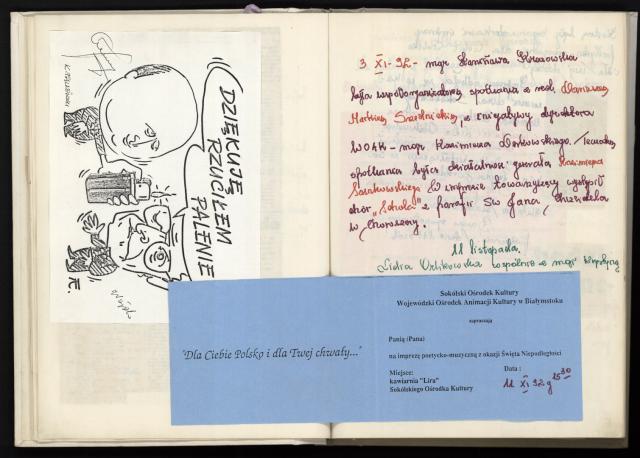 DZIĘKUJĘ,
RZUCIŁEM
PALENIE
3 XI-92 - mgr Stanisława
była współorganizatorką spotkania z red.
z inicjatywy dyrektora
WOAK - mgr Kazimierza
spotkania była działalność generała Kazimierza
Sosnkowskiego. W imprezie towarzyszącej wystąpił
chór „Schola" z parafii Św Jana
w Choroszczy.
11 listopada.
Lidia wspólnie z mgr
"Dla Ciebie Polsko i dla Twej chwały..."
Sokólski Ośrodek Kultury
Wojewódzki Ośrodek Animacji Kultury w Białymstoku
zapraszają
Panią (Pana)
na imprezę poetycko-muzyczną z okazji Święta Niepodległości
Miejsce:
kawiarnia "Lira"
Sokólskiego Ośrodka Kultury
Data :
11 XI 92 g 15 30